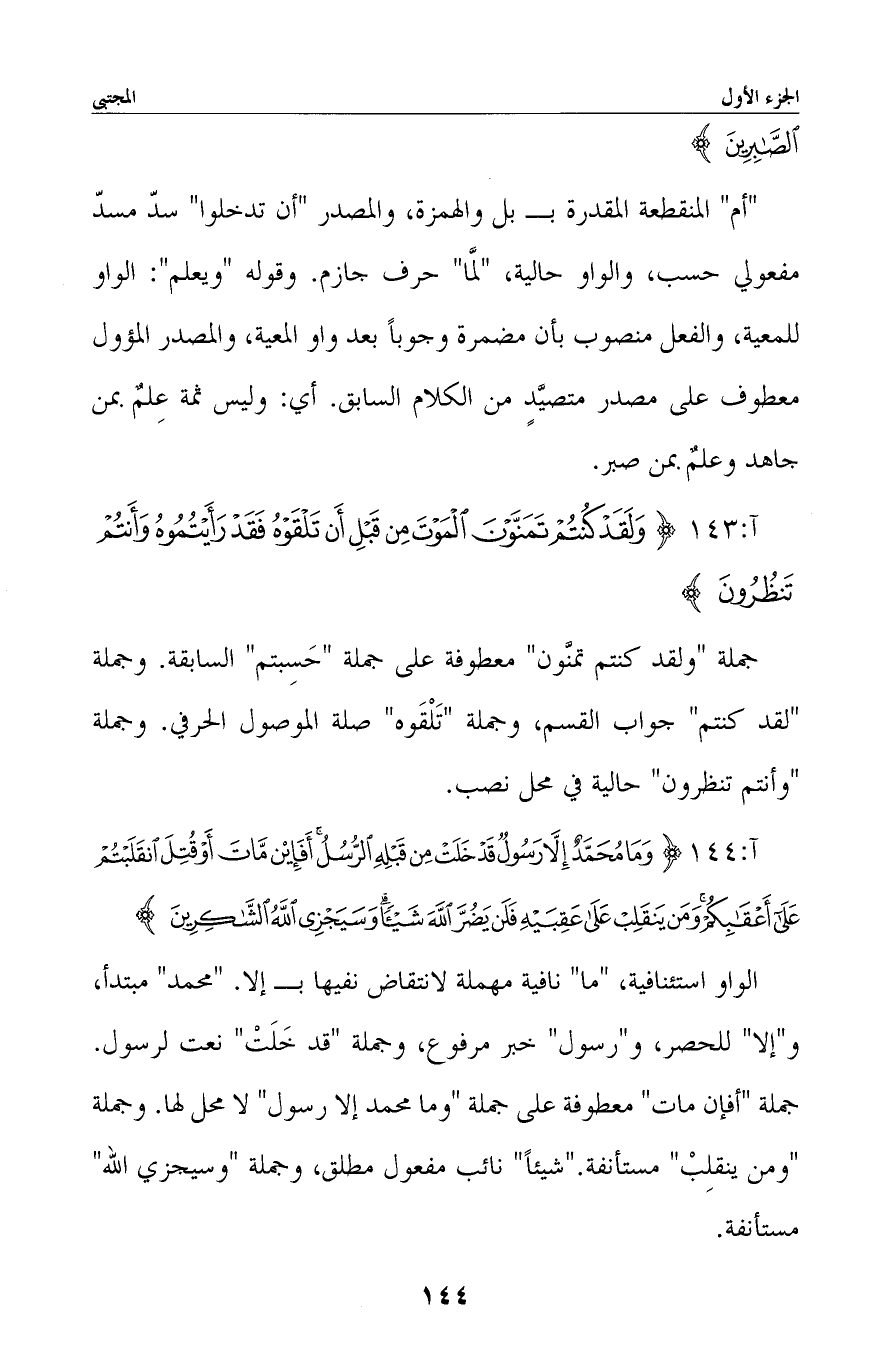 الجزء الأول المجتبى
ٱلصَّٰبِرِينَ ﴾
"أم" المنقطعة المقدرة بـ بل والهمزة، والمصدر "أن تدخلوا" سدّ مسدّ
مفعولي حسب، والواو حالية، "لمَّا" حرف جازم. وقوله "ويعلم": الواو
للمعية، والفعل منصوب بأن مضمرة وجوباً بعد واو المعية، والمصدر المؤول
معطوف على مصدر متصيَّدٍ من الكلام السابق. أي: وليس ثمة عِلمٌ بمن
جاهد وعلمٌ بمن صبر.
آ:١٤٣ ﴿ وَلَقَدْ كُنتُمْ تَمَنَّوْنَ ٱلْمَوْتَ مِن قَبْلِ أَن تَلْقَوْهُ فَقَدْ رَأَيْتُمُوهُ وَأَنتُمْ
تَنظُرُونَ ﴾
جملة "ولقد كنتم تمنَّون" معطوفة على جملة "حَسِبتم" السابقة. وجملة
"لقد كنتم" جواب القسم، وجملة "تَلْقَوه" صلة الموصول الحرفي. وجملة
"وأنتم تنظرون" حالية في محل نصب.
آ:١٤٤ ﴿ وَمَا مُحَمَّدٌ إِلَّا رَسُولٌ قَدْ خَلَتْ مِن قَبْلِهِ ٱلرُّسُلُ ۚ أَفَإِيْن مَّاتَ أَوْ قُتِلَ ٱنقَلَبْتُمْ
عَلَىٰٓ أَعْقَٰبِكُمْ ۚ وَمَن يَنقَلِبْ عَلَىٰ عَقِبَيْهِ فَلَن يَضُرَّ ٱللَّهَ شَيْـًٔا ۗ وَسَيَجْزِى ٱللَّهُ ٱلشَّٰكِرِينَ ﴾
الواو استئنافية، "ما" نافية مهملة لانتقاض نفيها بـ إلا. "محمد" مبتدأ،
و"إلا" للحصر، و"رسول" خبر مرفوع، وجملة "قد خَلَتْ" نعت لرسول.
جملة "أفإن مات" معطوفة على جملة "وما محمد إلا رسول" لا محل لها. وجملة
"ومن ينقلِبْ" مستأنفة. "شيئاً" نائب مفعول مطلق، وجملة "وسيجزي الله"
مستأنفة.
١٤٤